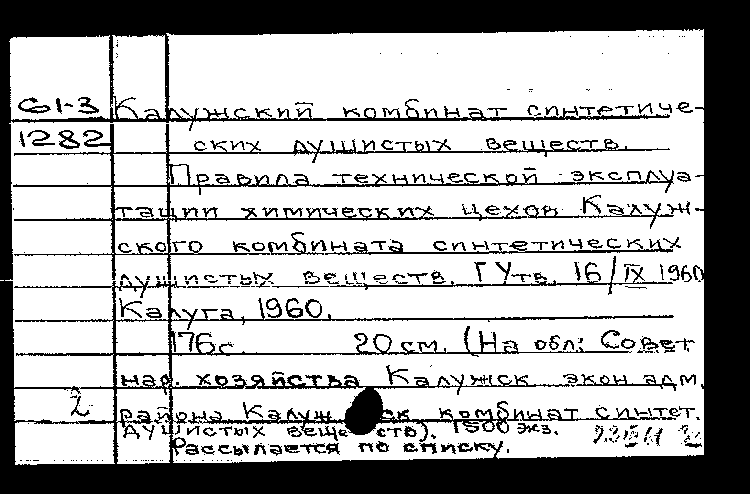 61-3 Калужский комбинат синтетиче-
1282 ских душистых веществ.
Правила технической эксплуа-
тации химических цехов Калуж-
ского комбината синтетических
душистых веществ. ГУтв. 16/IX 1960
Калуга, 1960.
176с. 20 см. (На обл: Совет
нар. хозяйства Калужск экон адм.
2 района Калуж ск комбинат синтет.
душистых веществ). 1500 экз.
Рассылается по списку.